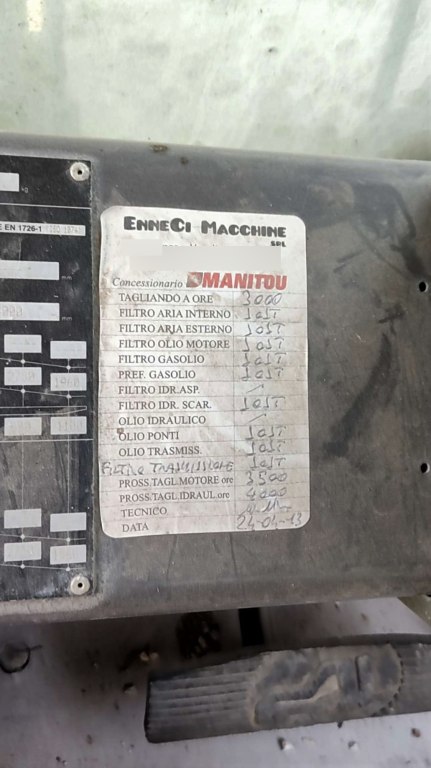 kg
E EN 1726-1
mm
mm
ENNECI MACCHINE
SRL
Concessionario MANITOU
TAGLIANDO A ORE 3000
FILTRO ARIA INTERNO SOST
FILTRO ARIA ESTERNO SOST
FILTRO OLIO MOTORE SOST
FILTRO GASOLIO SOST
PREF. GASOLIO SOST
FILTRO IDR.ASP.
FILTRO IDR. SCAR. SOST
OLIO IDRAULICO
OLIO PONTI SOST
OLIO TRASMISS. SOST
FILTRO TRASMISSIONE SOST
PROSS.TAGL.MOTORE ore 3500
PROSS.TAGL.IDRAUL.ore 4000
TECNICO
DATA 24-04-13